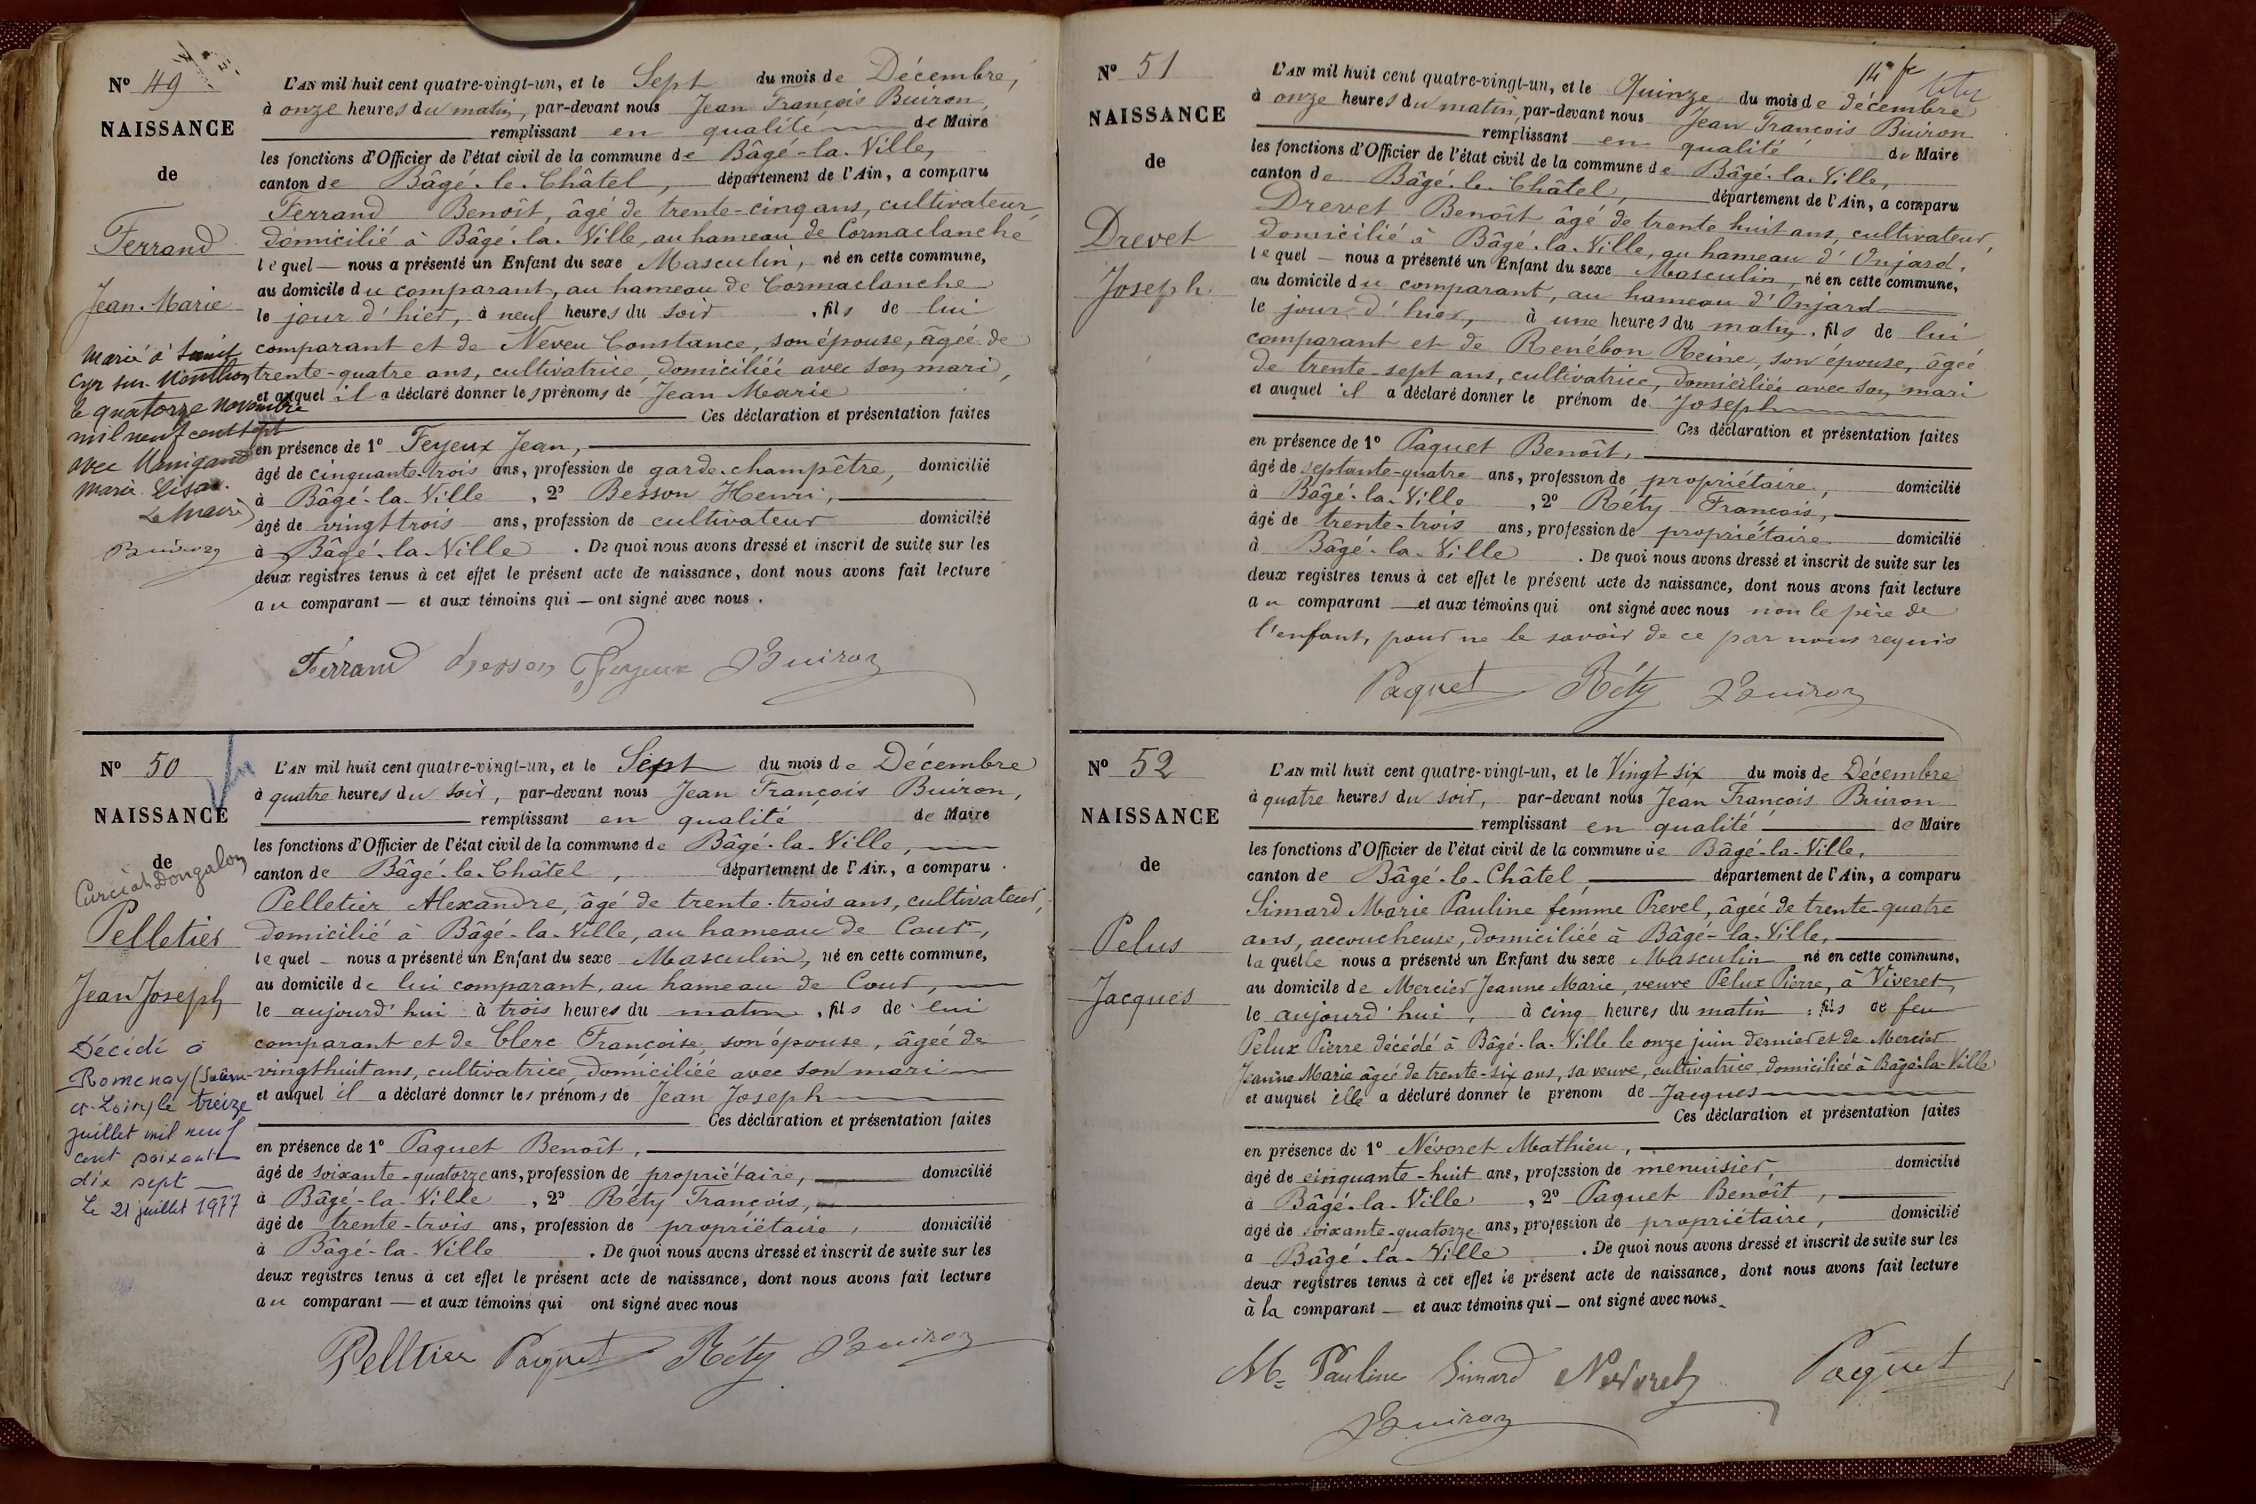 Nº 49
NAISSANCE
de
Ferrand
Jean-Marie
Marié à Saint
Cyr sur Menthon
le quatorze novembre
mil neuf cent sept
avec
Marie
Le Maire
Buiron
L'AN mil huit cent quatre-vingt-un, et le Sept du mois de Décembre,
à onze heures du matin, par-devant nous Jean François Buiron,
remplissant en qualité de Maire
les fonctions d'Officier de l'état civil de la commune de Bâgé-la-Ville,
canton de Bâgé-le-Châtel, département de l'Ain, a comparu
Ferrand Benoît, âgé de trente-cinq ans, cultivateur,
domicilié à Bâgé-la-Ville, au hameau de Cormaclanche
lequel — nous a présenté un Enfant du sexe Masculin, né en cette commune,
au domicile du comparant, au hameau de Cormaclanche
le jour d'hier, à neuf heures du soir, fils de lui
comparant et de Neveu Constance, son épouse, âgée de
trente-quatre ans, cultivatrice, domiciliée avec son mari,
et auquel il a déclaré donner les prénoms de Jean Marie
Ces déclaration et présentation faites
en présence de 1º Feyeux Jean,
âgé de cinquante-trois ans, profession de garde-champêtre, domicilié
à Bâgé-la-Ville, 2º Besson Henri,
âgé de vingt trois ans, profession de cultivateur domicilié
à Bâgé-la-Ville. De quoi nous avons dressé et inscrit de suite sur les
deux registres tenus à cet effet le présent acte de naissance, dont nous avons fait lecture
au comparant — et aux témoins qui — ont signé avec nous.
Ferrand Besson Feyeux Buiron
Nº 50
NAISSANCE
de
Curciat Dongalon
Pelletier
Jean Joseph
Décédé à
Romenay (Saône-
et-Loire) le treize
juillet mil neuf
cent soixante
dix sept
Le 21 juillet 1977
L'AN mil huit cent quatre-vingt-un, et le Sept du mois de Décembre
à quatre heures du soir, par-devant nous Jean François Buiron,
remplissant en qualité de Maire
les fonctions d'Officier de l'état civil de la commune de Bâgé-la-Ville,
canton de Bâgé-le-Châtel, département de l'Ain, a comparu
Pelletier Alexandre, âgé de trente-trois ans, cultivateur,
domicilié à Bâgé-la-Ville, au hameau de Cour,
lequel — nous a présenté un Enfant du sexe Masculin, né en cette commune,
au domicile de lui comparant, au hameau de Cour,
le aujourd'hui à trois heures du matin, fils de lui
comparant et de Clerc Françoise, son épouse, âgée de
vingt huit ans, cultivatrice, domiciliée avec son mari
et auquel il a déclaré donner les prénoms de Jean Joseph
Ces déclaration et présentation faites
en présence de 1º Paquet Benoît,
âgé de soixante-quatorze ans, profession de propriétaire, domicilié
à Bâgé-la-Ville, 2º Réty François,
âgé de trente-trois ans, profession de propriétaire, domicilié
à Bâgé-la-Ville. De quoi nous avons dressé et inscrit de suite sur les
deux registres tenus à cet effet le présent acte de naissance, dont nous avons fait lecture
au comparant — et aux témoins qui ont signé avec nous
Pelletier Paquet Réty Buiron
Nº 51
NAISSANCE
de
Drevet
Joseph
L'AN mil huit cent quatre-vingt-un, et le Quinze du mois de décembre
à onze heures du matin, par-devant nous Jean François Buiron
remplissant en qualité de Maire
les fonctions d'Officier de l'état civil de la commune de Bâgé-la-Ville,
canton de Bâgé-le-Châtel, département de l'Ain, a comparu
Drevet Benoît âgé de trente huit ans, cultivateur,
domicilié à Bâgé-la-Ville, au hameau d'Onjard,
lequel — nous a présenté un Enfant du sexe Masculin, né en cette commune,
au domicile du comparant, au hameau d'Onjard
le jour d'hier, à une heures du matin, fils de lui
comparant et de Renébon Reine, son épouse, âgée
de trente-sept ans, cultivatrice, domiciliée avec son mari
et auquel il a déclaré donner le prénom de Joseph
Ces déclaration et présentation faites
en présence de 1º Paquet Benoît,
âgé de septante-quatre ans, profession de propriétaire, domicilié
à Bâgé-la-Ville, 2º Réty François,
âgé de trente-trois ans, profession de propriétaire domicilié
à Bâgé-la-Ville. De quoi nous avons dressé et inscrit de suite sur les
deux registres tenus à cet effet le présent acte de naissance, dont nous avons fait lecture
au comparant — et aux témoins qui ont signé avec nous non le père de
l'enfant, pour ne le savoir de ce par nous requis
Paquet Réty Buiron
Nº 52
NAISSANCE
de
Pelus
Jacques
L'AN mil huit cent quatre-vingt-un, et le Vingt six du mois de Décembre
à quatre heures du soir, par-devant nous Jean François Buiron
remplissant en qualité de Maire
les fonctions d'Officier de l'état civil de la commune de Bâgé-la-Ville,
canton de Bâgé-le-Châtel, département de l'Ain, a comparu
Simard Marie Pauline femme Prevel, âgée de trente-quatre
ans, accoucheuse, domiciliée à Bâgé-la-Ville,
laquelle nous a présenté un Enfant du sexe Masculin né en cette commune,
au domicile de Mercier Jeanne Marie, veuve Pelux Pierre, à Viveret,
le aujourd'hui, à cinq heures du matin, fils de feu
Pelux Pierre décédé à Bâgé-la-Ville le onze juin dernier et de Mercier
Jeanne Marie âgée de trente-six ans, sa veuve, cultivatrice, domiciliée à Bâgé-la-Ville
et auquel elle a déclaré donner le prénom de Jacques
Ces déclaration et présentation faites
en présence de 1º Névoret Mathieu,
âgé de cinquante-huit ans, profession de menuisier, domicilié
à Bâgé-la-Ville, 2º Paquet Benoît,
âgé de soixante-quatorze ans, profession de propriétaire, domicilié
à Bâgé-la-Ville. De quoi nous avons dressé et inscrit de suite sur les
deux registres tenus à cet effet le présent acte de naissance, dont nous avons fait lecture
à la comparant — et aux témoins qui — ont signé avec nous.
Me Pauline Simard Nevoret Paquet
Buiron